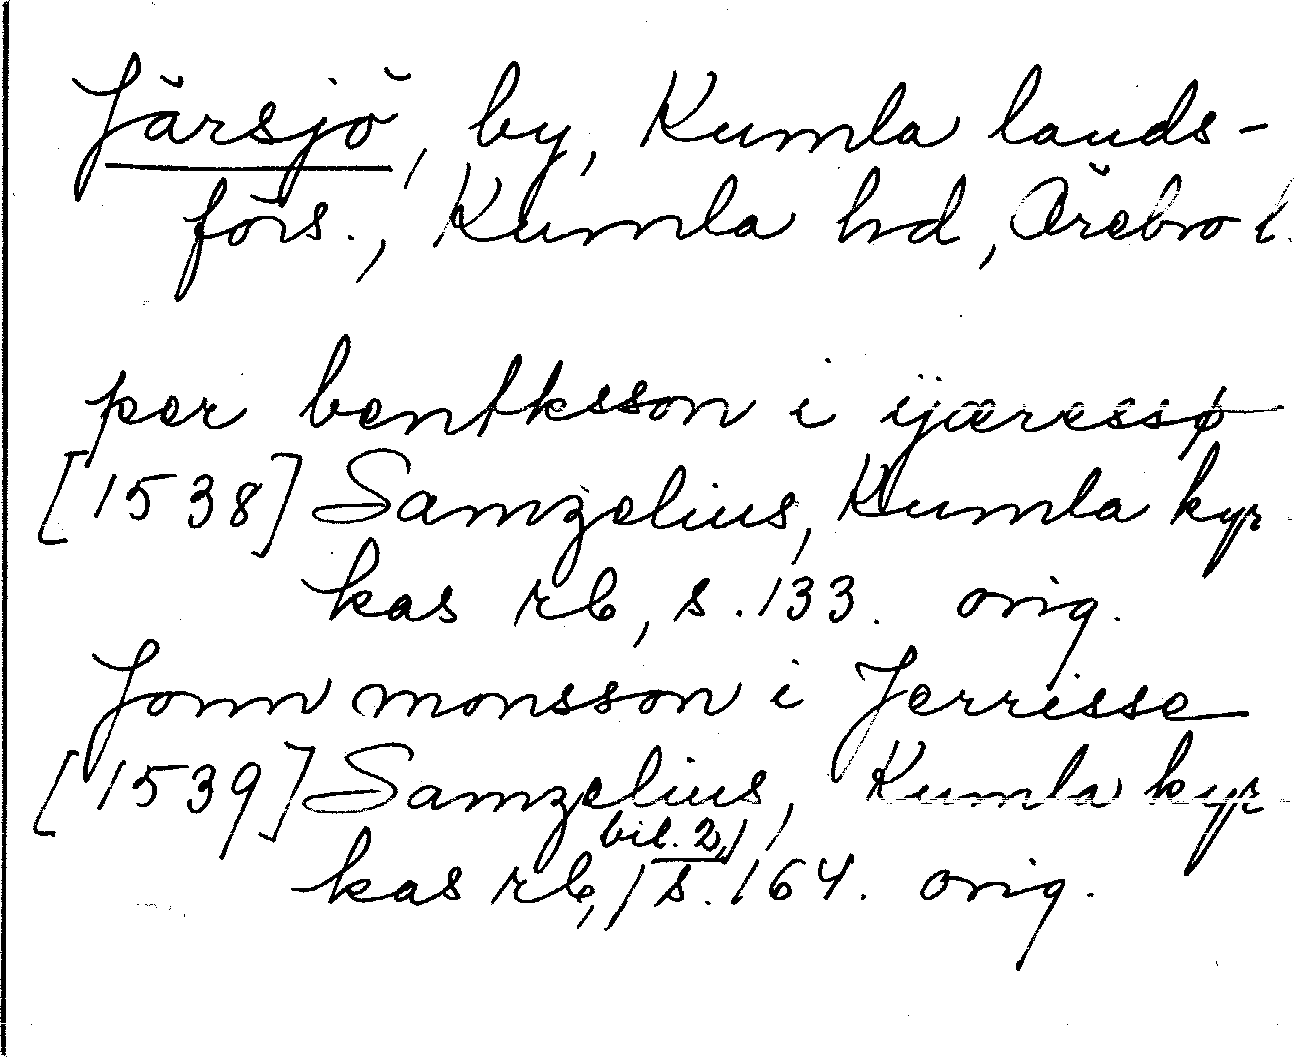 Järsjö, by, Kumla lands-
förs., Kumla hd, Örebro l.
per bentksson i ijæressø
[1538] Samzelius, Kumla kyr
kas rb, s. 133. orig.
Jonn monsson i Jerrisse
[1539] Samzelius, Kumla kyr
kas rb, bil. 2, s. 164. orig.